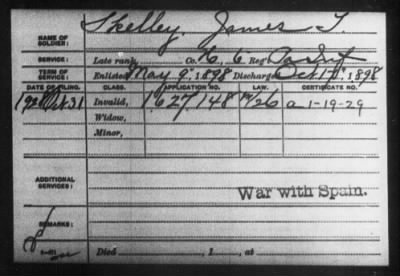 NAME OF SOLDIER: Skelley, James T.
SERVICE: Late rank, Co. 6 Reg't Pa Inf
TERM OF SERVICE: Enlisted May 9, 1898 Discharged Oct 17, 1898
DATE OF FILING. CLASS. APPLICATION NO. LAW. CERTIFICATE NO.
31 Invalid, 1627148 a 1-19-29
Widow,
Minor,
ADDITIONAL SERVICES:
War with Spain.
REMARKS:
Died , 1 , at